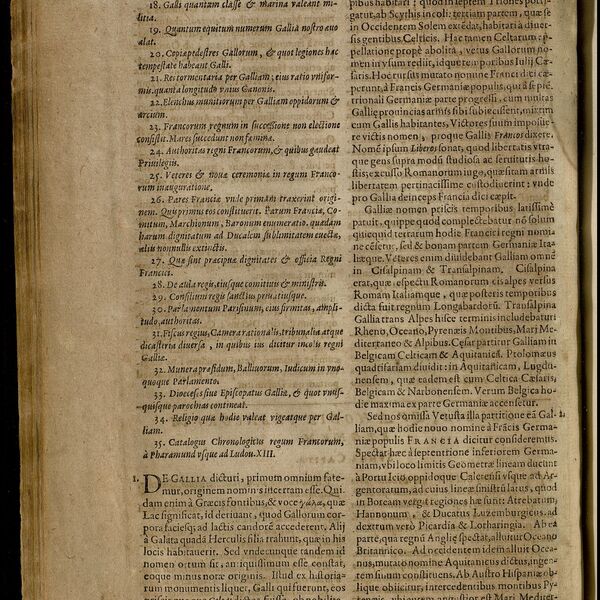 18. Galli quantum classe & marina valeant militia.
19. Quantum equitum numerum Gallia nostro auo
alat.
20. Copiæ pedestres Gallorum, & quot legiones hac
tempestate habeant Galli.
21. Res tormentaria per Galliam, eius ratio vnifor-
mis. quanta longitudo vnius Canonis.
22. Elenchus munitiorum per Galliam oppidorum &
arcium.
23. Francorum regnum in successione non electione
consistit. Mares succedunt non fæminæ.
24. Authoritas regni Francorum, & quibus gaudeat
Privilegiis.
25. Veteres & nouæ ceremoniæ in regum Franco-
rum inauguratione.
26. Pares Franciæ vnde primam traxerint origi-
nem. Qui primus eos constituerit. Parum Franciæ, Co-
mitum, Marchionum, Baronum enumeratio. quædam
harum dignitatum ad Ducalem sublimitatem euectæ,
aliis nonnullis extinctis.
27. Quæ sint præcipuæ dignitates & officia Regni
Francici.
28. De aula regis, eiusque comitiuis & ministris.
29. Consilium regis sanctius priuatiusque.
30. Parlamentum Parisinum, eius firmitas, ampli-
tudo, authoritas.
31. Fiscus regius, Camera rationalis, tribunalia atque
dicasteria diversa, in quibus ius dicitur incolis regni
Galliæ.
32. Munera præsidum, Balliuorum, Iudicum in vno-
quoque Parlamento.
33. Diœceses siue Episcopatus Galliæ, & quot vnus-
quisque parochias contineat.
34. Religio quæ hodie valeat vigeatque per Gal-
liam.
35. Catalogus Chronologicus regum Francorum,
à Pharamund vsque ad Ludou. XIII.
1. DE GALLIA dicturi, primum omnium fate-
mur, originem nominis incertam esse. Qui
dam enim à Græcis fontibus, & voce γάλα, quæ
Lac significat, id deriuant, quod Gallorum cor-
pora faciesq; ad lactis candorē accederent. Alij
à Galata quadā Herculis filia trahunt, quæ in his
locis habitauerit. Sed vndecunque tandem id
nomen ortum sit, antiquissimum esse constat,
eoque minus notæ originis. Illud ex historia-
rum monumentis liquet, Galli qui fuerunt, eos
pibus habitari: quod in Septem Triones porri-
gatut, ab Scythis incoli: tertiam partem, quæ se
in Occidentem Solem extēdat, habitari à diuer-
sis gentibus Celticis. Hac tamen Celtarum ap-
pellatione propè abolita, vetus Gallorum no-
men in vsum rediit, idq; ante temporibus Iulij Cæ-
saris. Hoc rursus mutato nomine Francidici cæ-
perunt, à Francis Germaniæ populis, qui à se prē-
trionali Germaniæ parte progressi, cum multas
Galliæ prouincias armis sibi subiecissent, mixtim
cum Gallis habitantes, Victores suum imposue-
re victis nomen, proque Gallis Francos dixere.
Nomē ipsum Liberos sonat, quod libertatis vtra-
que gens supra modū studiosa ac seruitutis ho-
stis, excusso Romanorum iugo, quæsitam armis
libertatem pertinacissime custodiuerint: vnde
pro Gallia deinceps Francia dici cæpit.
Galliæ nomen priscis temporib. latissimè
patuit, quippe quod complectebatur nō solum
quicquid terrarum hodie Francici regni nomi-
ne cēsetur, sed & bonam partem Germaniæ Ita-
liæque. Veteres enim diuidebant Galliam omnē
in Cisalpinam & Transalpinam. Cisalpina
erat, quæ respectu Romanorum cis alpes versus
Romam Italiamque, quæ posteris temporibus
dicta fuit regnum Longabardorū. Transalpina
Gallia trans Alpes hisce terminis includebatur:
Rheno, Oceano, Pyrenæis Montibus, Mari Medi-
terraneo & Alpibus. Cæsar partitur Galliam in
Belgicam Celticam & Aquitanicā. Ptolomæus
quadrifariam diuidit: in Aquitanicam, Lugdu-
nensem, quæ eadem est cum Celtica Cæsaris,
Belgicam & Narbonensem. Verum Belgica ho-
die maxima ex parte Germaniæ accensetur.
Sed nos omissa Vetusta illa partitione eā Gal-
liam, quæ hodie nouo nomine à Frācis Germa-
niæ populis FRANCIA dicitur consideremus.
Spectat hæc à septentrione inferiorem Germa-
niam, vbi loco limitis Geometræ lineam ducunt
à Portu Iccio, oppidoque Caletensi vsque ad Ar-
gentoratum, ad cuius lineæ sinistrū latus, quod
in Boream vergit regiones hæ sunt: Atrebatum,
Hannonum, & Ducatus Luxemburgicus. ad
dextrum verò Picardia & Lotharingia. Ab ea
parte, qua regnū Angliæ spectat, alluitur Oceano
Britannico. Ad occidentem idem alluit Ocea-
nus, mutato nomine Aquitanicus dictus, ingen-
tem sinum constituens. Ab Austro Hispaniæ ob-
iicitur, intercedentibus montibus Py-